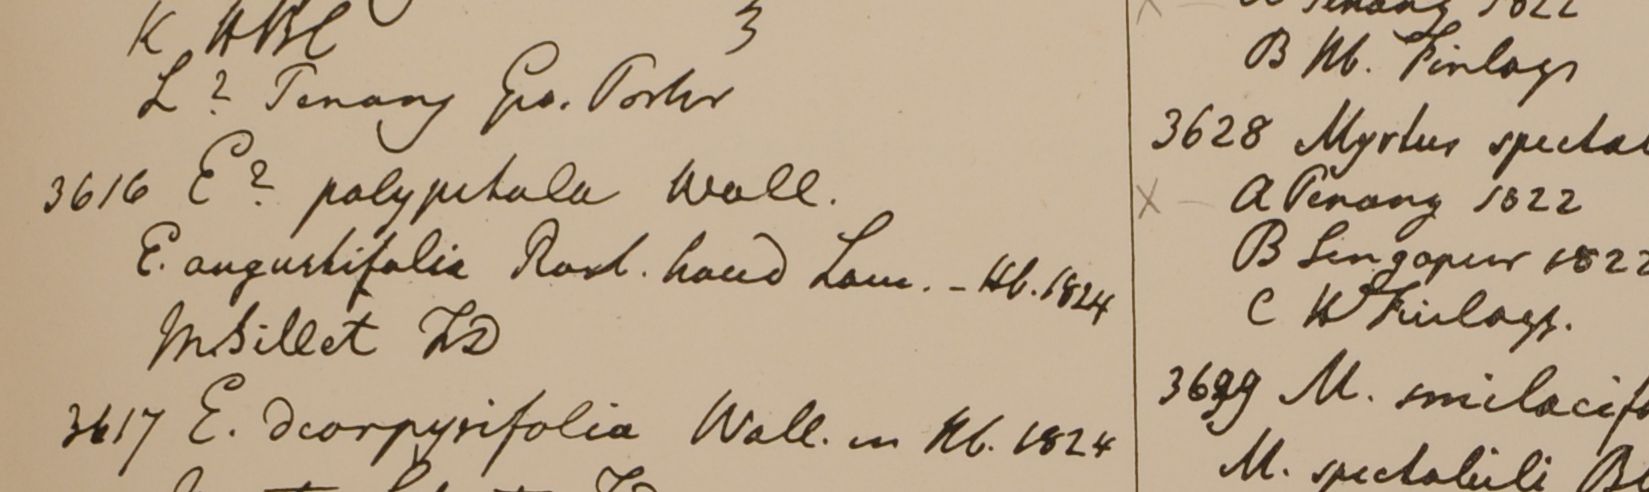 K HBC 3
L? Penang Geo. Porter
3616 E? polypetala Wall.
E. angustifolia Roxb. haud Lam. - Hb. 1824
M. Sillet FD
3617 E. diospyrifolia Wall. in Hb. 1824
Penang 1822
B Hb. Finlays
3628 Myrtus spectab
X - A Penang 1822
B Singapur 1822
C H Finlays.
3629 M. smilacifo
M. spectabili Bl